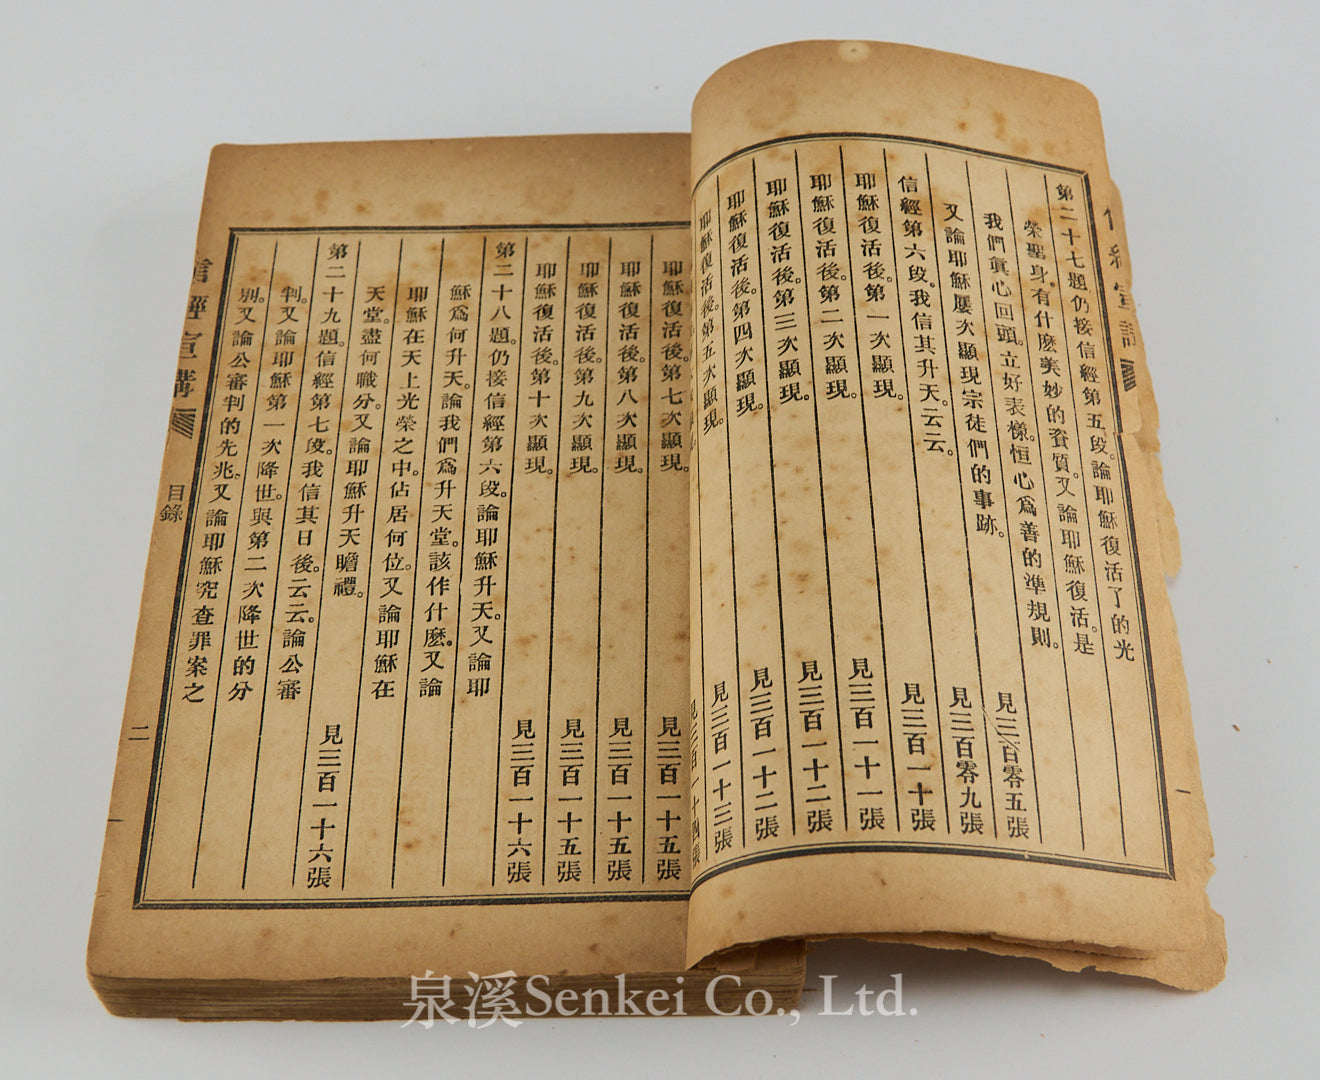 第二十七題仍接信經第五段。論耶穌復活了的光
榮聖身。有什麽美妙的資質。又論耶穌復活。是
我們眞心回頭。立好表樣。恒心爲善的準規則。見三百零五張
又論耶穌屢次顯現宗徒們的事跡。見三百零九張
信經第六段。我信其升天。云云。見三百一十張
耶穌復活後。第一次顯現。見三百一十一張
耶穌復活後。第二次顯現。見三百一十二張
耶穌復活後。第三次顯現。見三百一十二張
耶穌復活後。第四次顯現。見三百一十三張
耶穌復活後。第五次顯現。見三百一十四張
耶穌復活後。第七次顯現。見三百一十五張
耶穌復活後。第八次顯現。見三百一十五張
耶穌復活後。第九次顯現。見三百一十五張
耶穌復活後。第十次顯現。見三百一十六張
第二十八題。仍接信經第六段。論耶穌升天。又論耶
穌爲何升天。論我們爲升天堂。該作什麽。又論
耶穌在天上光榮之中。佔居何位。又論耶穌在
天堂。盡何職分。又論耶穌升天瞻禮。見三百一十六張
第二十九題。信經第七段。我信其日後。云云。論公審
判。又論耶穌第一次降世。與第二次降世的分
別。又論公審判的先兆。又論耶穌究查罪案之
信經宣講
目錄
二
泉溪Senkei Co., Ltd.